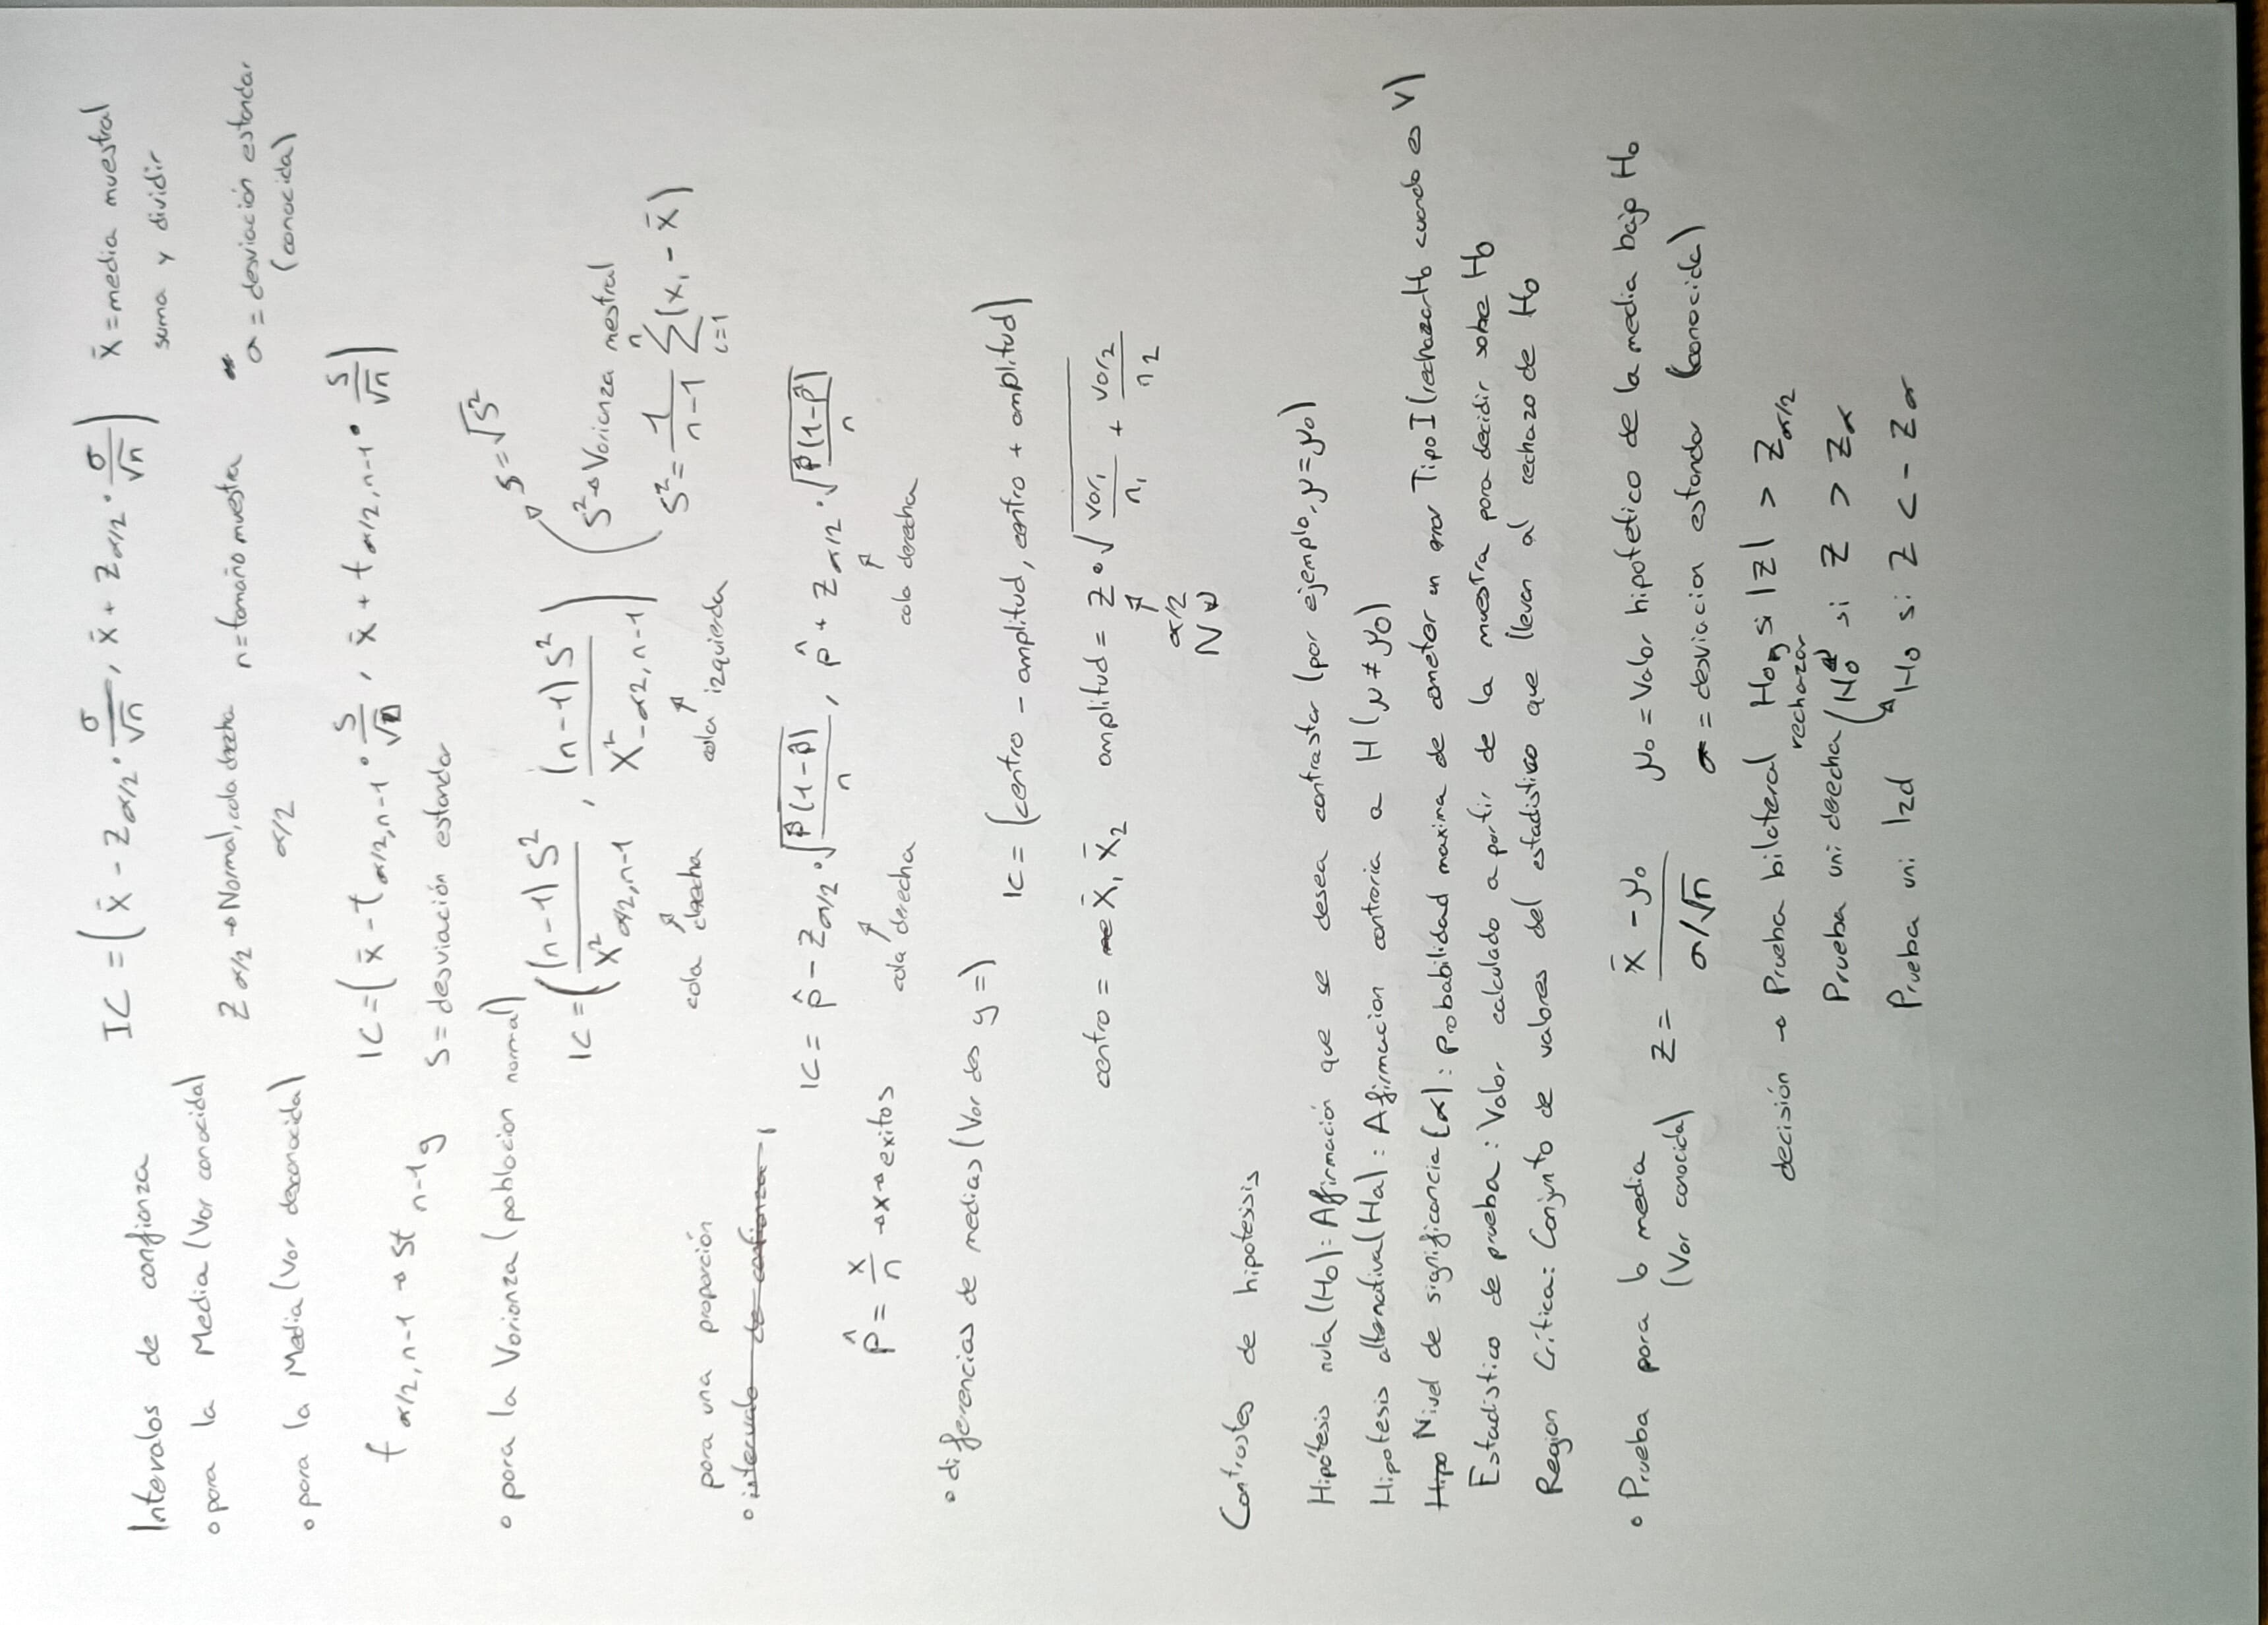 IC = ( x̄ - Z α/2 · σ/√n , x̄ + Z α/2 · σ/√n )
x̄ = media muestral
suma y dividir
Intervalos de confianza
o para la Media (Var conocida)
Z α/2 → Normal, cola drecha α/2
n = tamaño muestra
σ = desviación estandar (conocida)
o para la Media (Var desconocida)
IC = ( x̄ - t α/2, n-1 · S/√n , x̄ + t α/2, n-1 · S/√n )
t α/2, n-1 → st n-1 g
S = desviación estandar
o para la Varianza (poblacion normal)
S = √S²
IC = ( (n-1) S² / X² α/2, n-1 , (n-1) S² / X² -α2, n-1 )
S² → Varianza mestral
S² = 1/(n-1) Σ i=1 n (x, - x̄)
cola drecha
cola izquierda
para una proporción
o intervalo de confianza
IC = p̂ - Z α/2 · √ p̂(1-p̂)/n , p̂ + Z α/2 · √ p̂(1-p̂)/n
p̂ = x/n → x → exitos
cola derecha
cola derecha
o diferencias de medias (Var des y =)
IC = (centro - amplitud, centro + amplitud)
centro = X̄₁ X̄₂ amplitud = Z · √ var₁/n₁ + var₂/n₂
α/2
N
Contrastes de hipotesisis
Hipótesis nula (H₀): Afirmación que se desea contrastar (por ejemplo, μ = μ₀)
Hipotesis alternatival (Ha): Afirmacion contraria a H (μ ≠ μ₀)
Hipo Nivel de significancia (α): Probabilidad maxima de cometer un error Tipo I (rechazar H₀ cuando es V)
Estadistico de prueba: Valor calculado a partir de la muestra para decidir sobe H₀
Region Crítica: Conjunto de valores del estadistico que llevan al rechazo de H₀
o Prueba para la media
(Var conocida)
Z = (x̄ - μ₀) / (σ/√n)
μ₀ = Valor hipotetico de la media bajo H₀
σ = desviacion estandar (conocida)
decisión → Prueba bilateral H₀ si |Z| > Z α/2
rechazar
Prueba uni derecha H₀ si Z > Zα
Prueba uni Izd H₀ si Z < - Zα